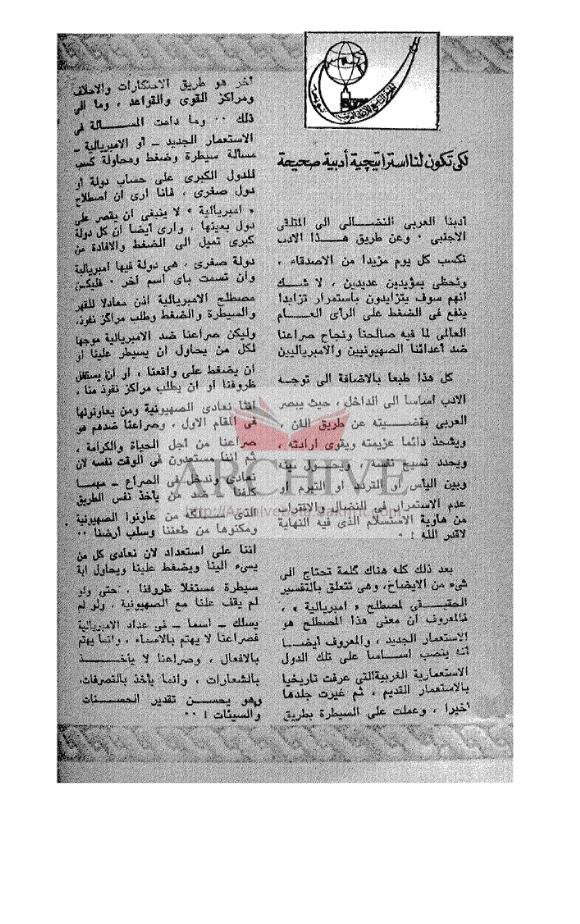 لكى تكون لنا استراتيجية أدبية صحيحة
أدبنا العربى النضالى الى المتلقى
الاجنبى . وعن طريق هذا الادب
نكسب كل يوم مزيدا من الاصدقاء ،
ونحظى بمؤيدين عديدين ، لا شك
انهم سوف يتزايدون باستمرار تزايدا
ينفع فى الضغط على الرأى العام
العالمى لما فيه صالحنا ونجاح صراعنا
ضد أعدائنا الصهيونيين والامبرياليين
كل هذا طبعا بالاضافة الى توجه
الادب اساسا الى الداخل ، حيث يبصر
العربى بقضيته عن طريق الفن ،
ويشحذ دائما عزيمته ويقوى ارادته ،
ويجدد نسيج نفسه ويحول بينه
وبين اليأس أو التردد أو التبرم أو
عدم الاستمرار فى النضال والاقتراب
من هاوية الاستسلام الذى فيه النهاية
لاقدر الله ! .
بعد ذلك كله هناك كلمة تحتاج الى
شىء من الايضاح، وهى تتعلق بالتفسير
الحقيقى لمصطلح « امبريالية » ،
فالمعروف أن معنى هذا المصطلح هو
الاستعمار الجديد ، والمعروف أيضا
أنه ينصب اساسا على تلك الدول
الاستعمارية الغربية التى عرفت تاريخيا
بالاستعمار القديم ، ثم غيرت جلدها
أخيرا ، وعملت على السيطرة بطريق
آخر هو طريق الاحتكارات والاحلاف
ومراكز القوى والقواعد ، وما الى
ذلك . . وما دامت المسألة فى
الاستعمار الجديد - أو الامبريالية -
مسألة سيطرة وضغط ومحاولة كسب
للدول الكبرى على حساب دولة أو
دول صغرى ، فأنا أرى ان اصطلاح
« امبريالية » لا ينبغى ان يقصر على
دول بعينها ، وأرى أيضا أن كل دولة
كبرى تميل الى الضغط والافادة من
دولة صغرى ، هى دولة فيها امبريالية
وان تسمت باى اسم آخر . فليكن
مصطلح الامبريالية اذن معادلا للقهر
والسيطرة والضغط وطلب مراكز نفوذ،
وليكن صراعنا ضد الامبريالية موجها
لكل من يحاول ان يسيطر علينا أو
ان يضغط على واقعنا ، أو أن يستغل
ظروفنا أو ان يطلب مراكز نفوذ منا ،
اننا نعادى الصهيونية ومن يعاونونها
فى المقام الاول ، وصراعنا ضدهم هو
صراعنا من أجل الحياة والكرامة ،
ثم اننا مستعدون فى الوقت نفسه لان
نعادى وندخل فى الصراع - مهما
كلفنا - ضد من يأخذ نفس الطريق
الذى سلكه من عاونوا الصهيونية
ومكنوها من طعننا وسلب أرضنا . .
اننا على استعداد لان نعادى كل من
يسىء الينا ويضغط علينا ويحاول اية
سيطرة مستغلا ظروفنا ، حتى ولو
لم يقف علنا مع الصهيونية ، ولو لم
يسلك - اسما - فى عداد الامبريالية
فصراعنا لا يهتم بالاسماء ، وانما يهتم
بالافعال ، وصراعنا لا يأخذ
بالشعارات ، وانما يأخذ بالتصرفات،
وهو يحسن تقدير الحسنات
والسيئات ! . .
ARCHIVE